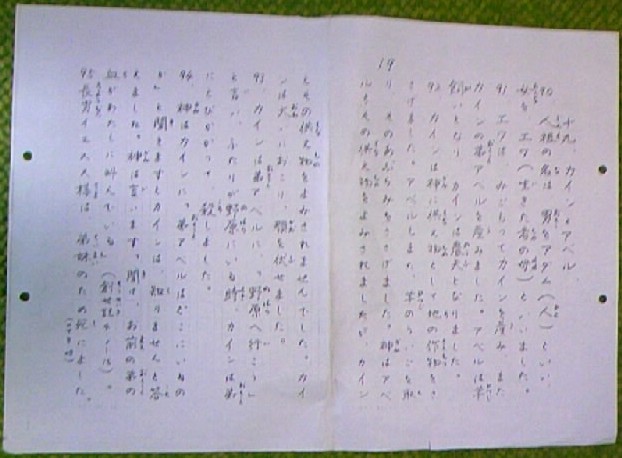 十九、カインとアベル
90、人祖の名は、男をアダム(人)といい、
女をエワ(生きた者の母)といいました。
91 エワは、みごもってカインを産み、また
カインの弟アベルを産みました。アベルは羊
飼いとなり、カインは農夫となりました。
92、カインは神に供え物として地の作物をさ
さげました。アベルもまた、羊のういごを取
り、そのあぶらみをささげました。神はアベ
ルとその供え物をよみされましたが、カイン
19
とその供え物をよみされませんでした。カイ
ンは大いにおこり、顔を伏せました。
93、カインは弟アベルに、「野原へ行こう」
と言い、ふたりが野原にいる時、カインは弟
にとびかかって、殺しました。
94、神はカインに、弟アベルはどこにいるの
か」と聞きますとカインは、知りませんと答
えました。神は言います。聞け、お前の弟の
血がわたしに叫んでいる (創世記
95 長男イエス大様は、弟妹のため死にました。